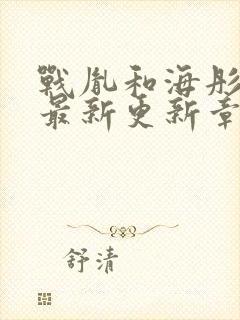 戰胤和海彤
最新更新章
舒清